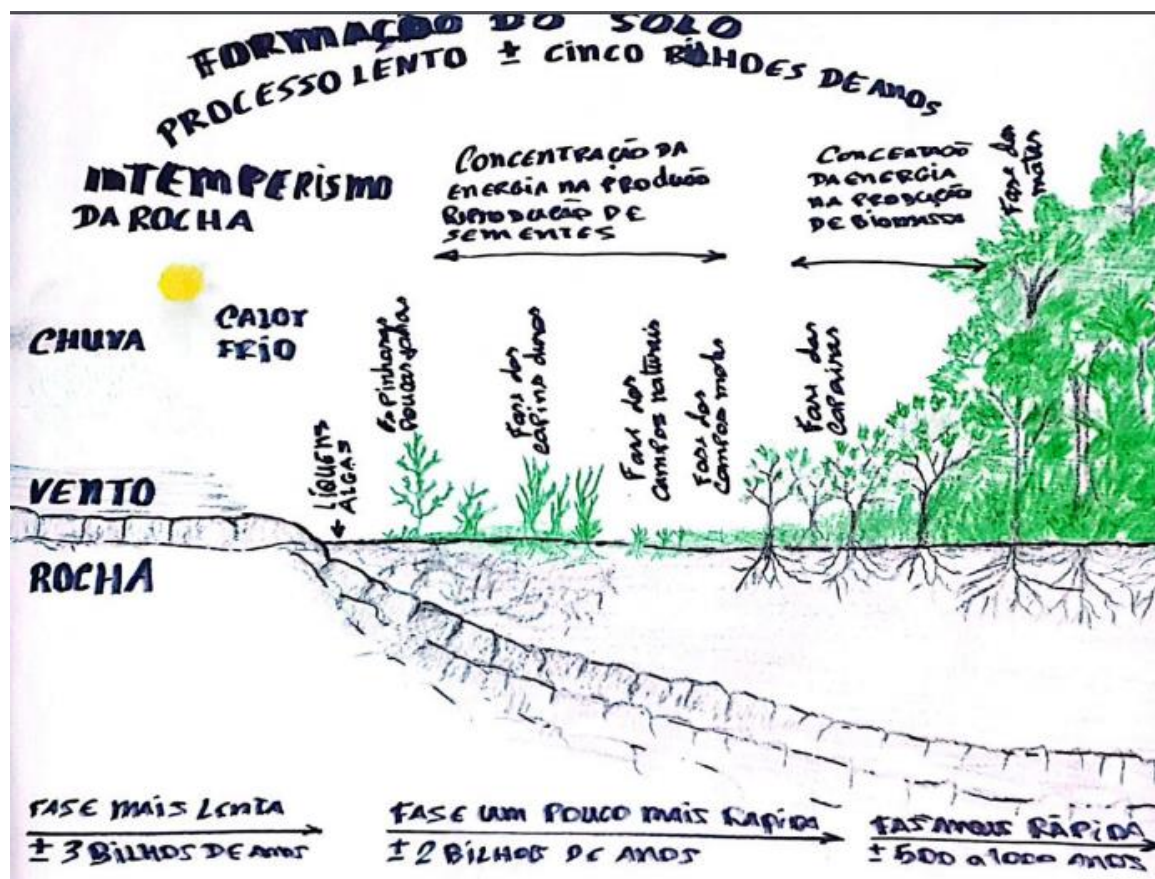 FORMAÇÃO DO SOLO
PROCESSO LENTO ± CINCO BILHOES DE ANOS
INTEMPERISMO
DA ROCHA
CONCENTRAÇÃO DA
ENERGIA NA PRODUÇÃO
REPRODUÇÃO DE
SEMENTES
CONCENTAÇÃO
DA ENERGIA
NA PRODUÇÃO
DE BIOMASSA
Fase das
matas
CHUVA
CALOR
FRIO
LÍQUENS
ALGAS
Espinhanços
Fase dos
capins duros
Fase dos
campos naturais
Fase dos
campos
Fase das
capoeiras
VENTO
ROCHA
FASE MAIS LENTA
± 3 BILHOS DE ANOS
FASE UM POUCO MAIS RAPIDA
± 2 BILHOS DE ANOS
RÁPIDA
± 500 a 1000 ANOS